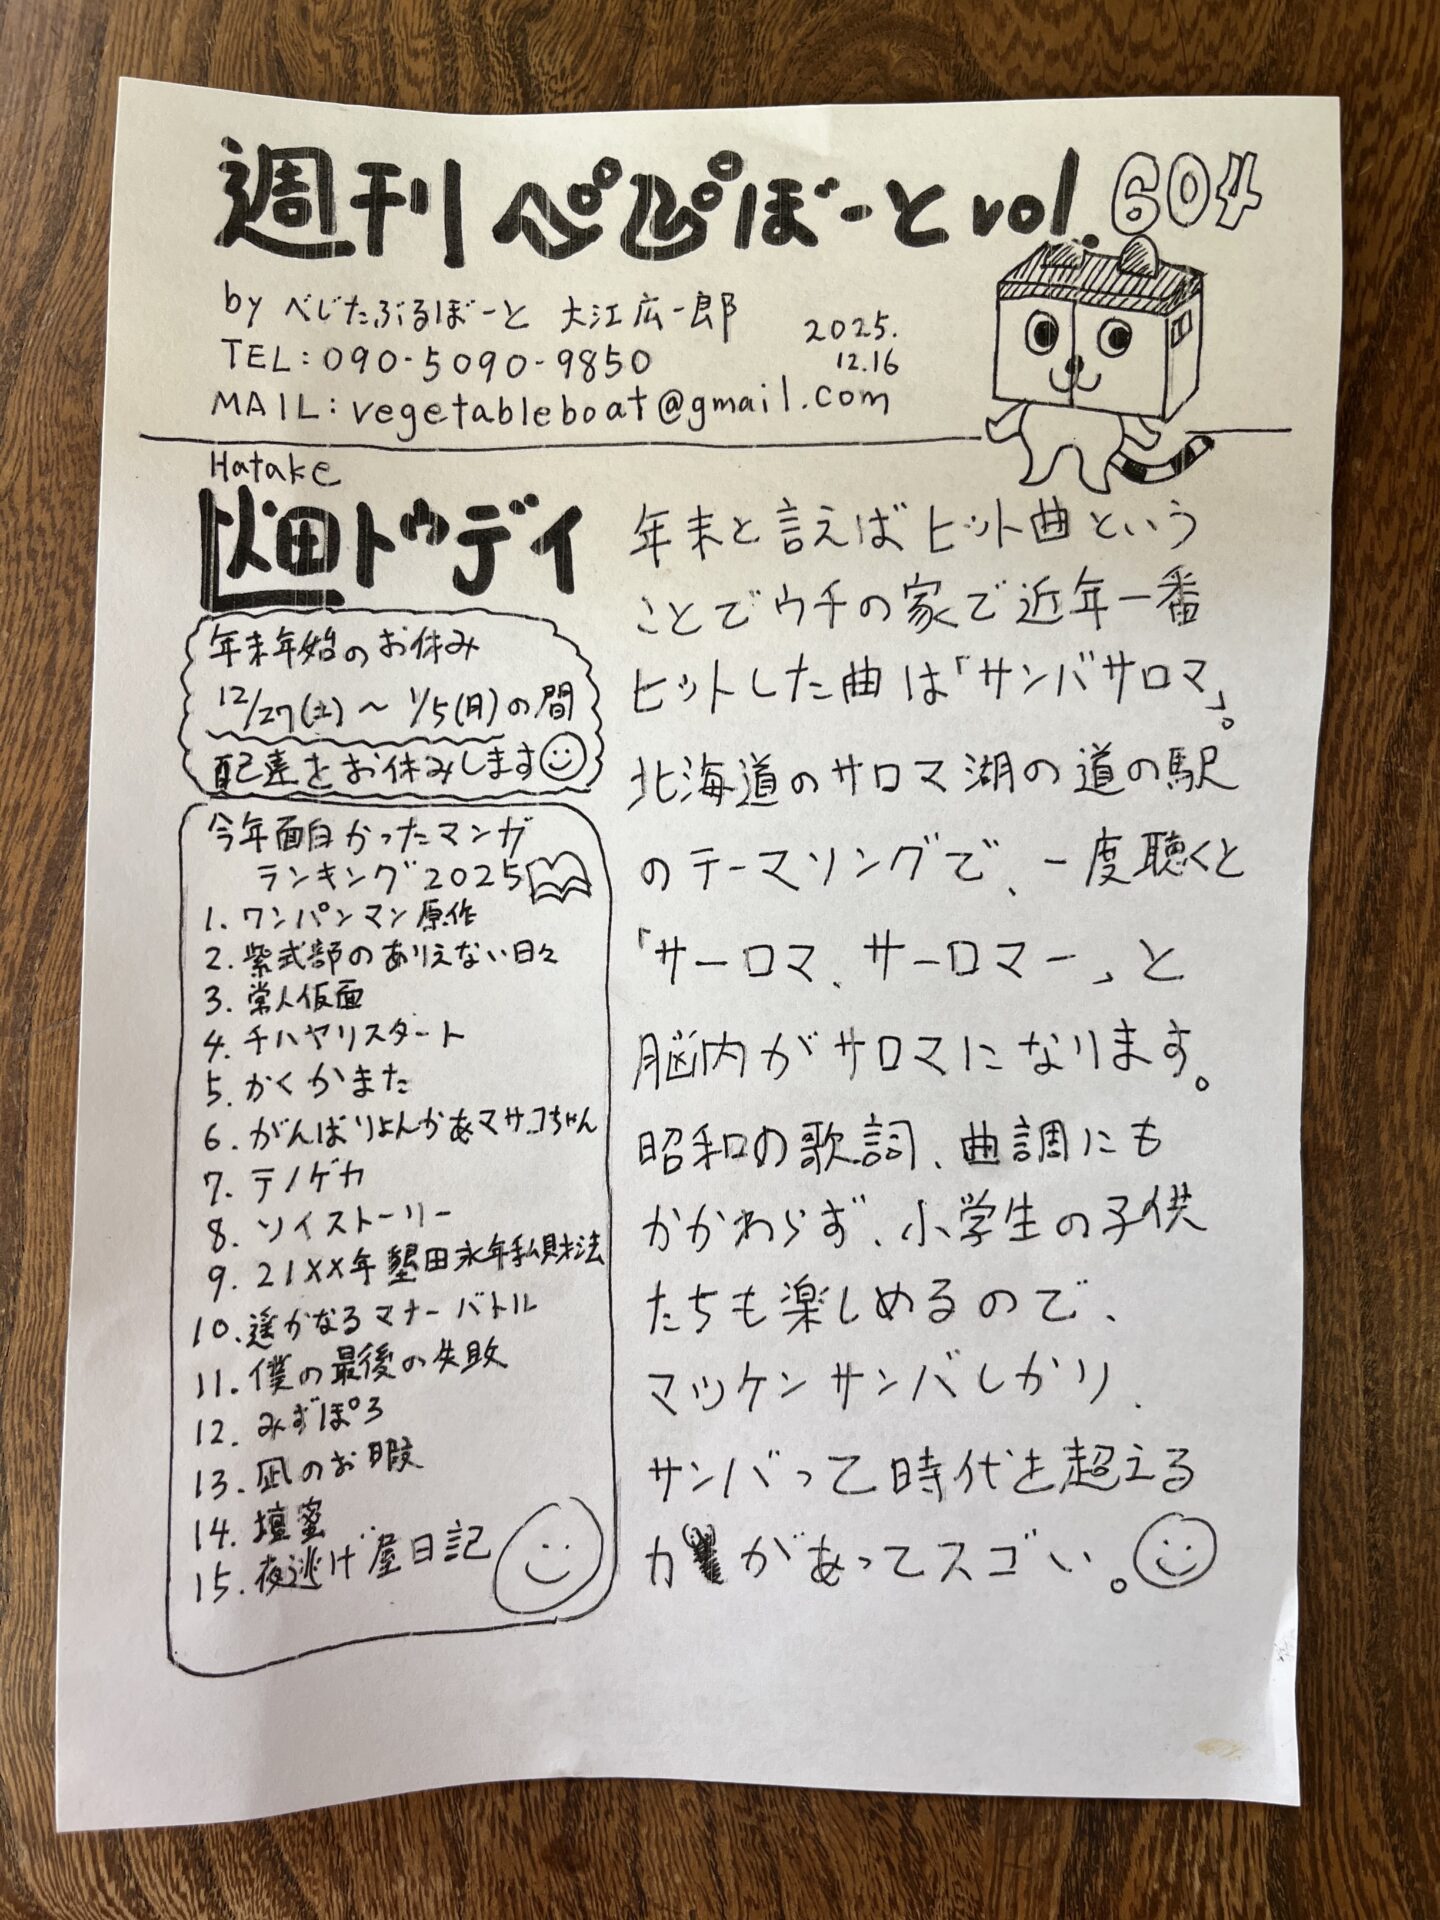 週刊 ベジぼーと vol.604
by べじたぶるぼーと 大江広一郎
2025.
12.16
TEL:090-5090-9850
MAIL:vegetableboat@gmail.com
Hatake
畑トゥデイ
年末年始のお休み
12/27(土)〜1/5(月)の間
配達をお休みします
今年面白かったマンガ
ランキング2025
1. ワンパンマン原作
2. 紫式部のありえない日々
3. 常人仮面
4. チハヤリスタート
5. かくかまた
6. がんばりょんかぁマサコちゃん
7. テノゲカ
8. ソイストーリー
9. 21XX年 墾田永年私財法
10. 遙かなるマナーバトル
11. 僕の最後の失敗
12. みずぽろ
13. 凪のお暇
14. 壇蜜
15. 夜逃げ屋日記
年末と言えばヒット曲という
ことでウチの家で近年一番
ヒットした曲は「サンバサロマ」。
北海道のサロマ湖の道の駅
のテーマソングで、一度聴くと
「サーロマ、サーロマー」と
脳内がサロマになります。
昭和の歌詞、曲調にも
かかわらず、小学生の子供
たちも楽しめるので、
マツケンサンバしかり、
サンバって時代を超える
力があってスゴい。